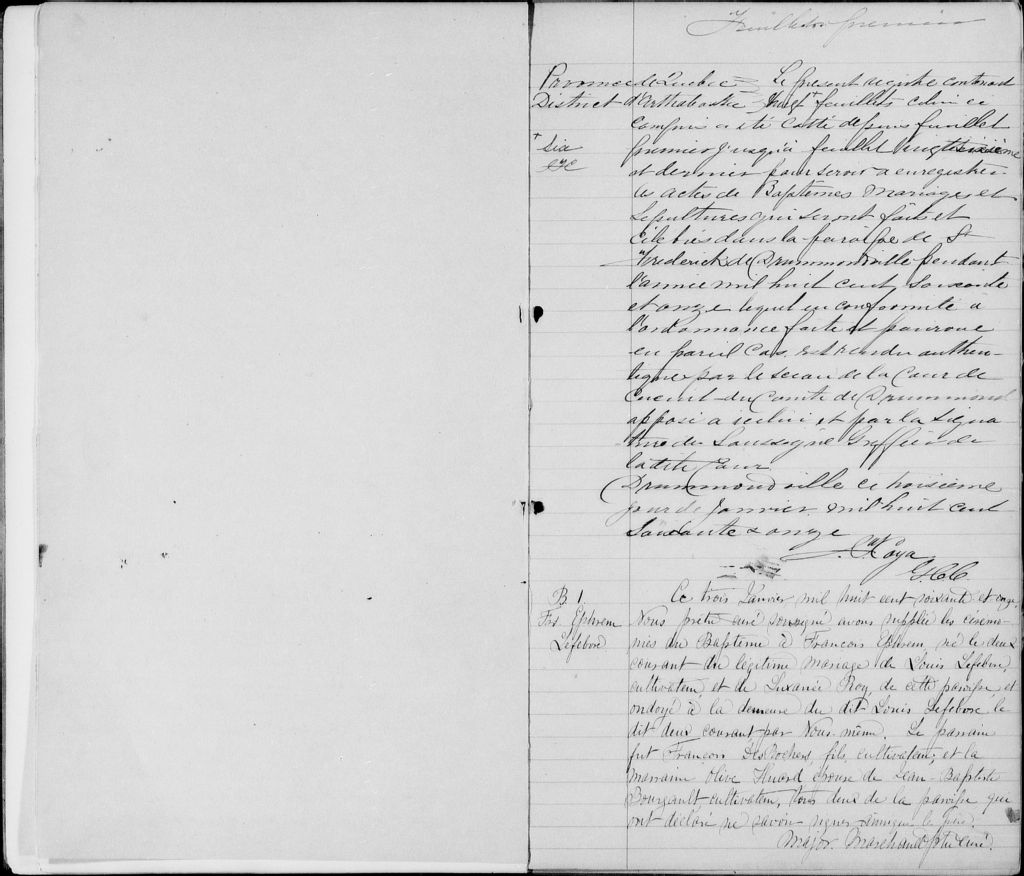 Feuillet premier
Province de Quebec = Le présent registre contenant
District d'Arthabaska = Vingt + feuillets celui ci
compris a été cotté depuis feuillet
+ Six
premier jusqu'a feuillet Vingtsixième
et dernier pour servir a enregistrer
les actes de Baptêmes Mariages et
Sepultures qui seront faits et
célébrés dans la paroisse de St
Frederick de Drummondville pendant
l'année mil huit cent soixante
et onze lequel en conformité a
l'ordonnance faite et pourvue
en pareil Cas, est rendu authen-
tique par le sceau de la Cour de
Circuit du Comté de Drummond
apposé a icelui et par la Signa
ture du Soussigné Greffier de
ladite Cour
Drummondville ce troisième
jour de Janvier mil huit cent
Soixante & onze
G.C.C.
B 1.
Frs. Ephrem
Lefebvre
Ce trois Janvier mil huit cent soixante et onze,
Nous prêtre curé soussigné avons supplée les cérémo-
nies du Baptême à François Ephrem, né le deux
courant du légitime mariage de Louis Lefebvre,
cultivateur, et de Roy, de cette paroisse et
ondoyé à la demeure du dit Louis Lefebvre le
dit deux courant par Nous même. Le parrain
fut François DesRochers, fils, cultivateur, et la
marraine Olive Huard épouse de Jean-Baptiste
Bourgault, cultivateur, tous deux de la paroisse qui
ont déclaré ne savoir signer ainsique le père.
Major. Marchand Ptre curé.